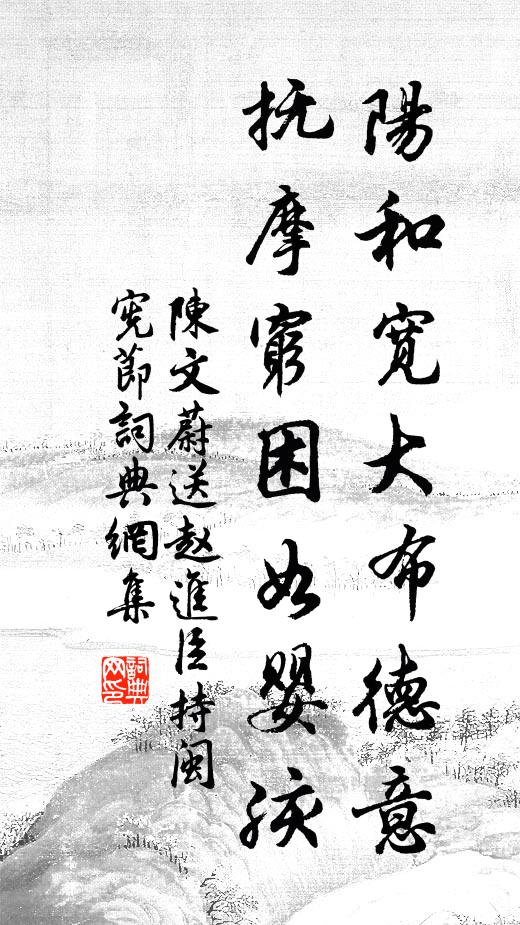 陽和寬大布德意
抚摩窮困如嬰孩
陳文蔚送趙進臣持閩
憲節詞典網集
詞典网印